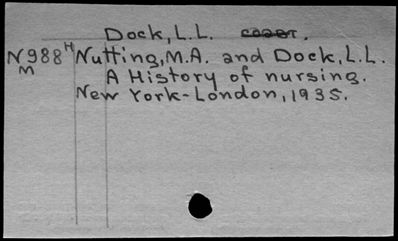 Dock, L.L. coaut.
N988H Nutting, M.A. and Dock, L.L.
M A History of nursing.
New York-London, 1935.